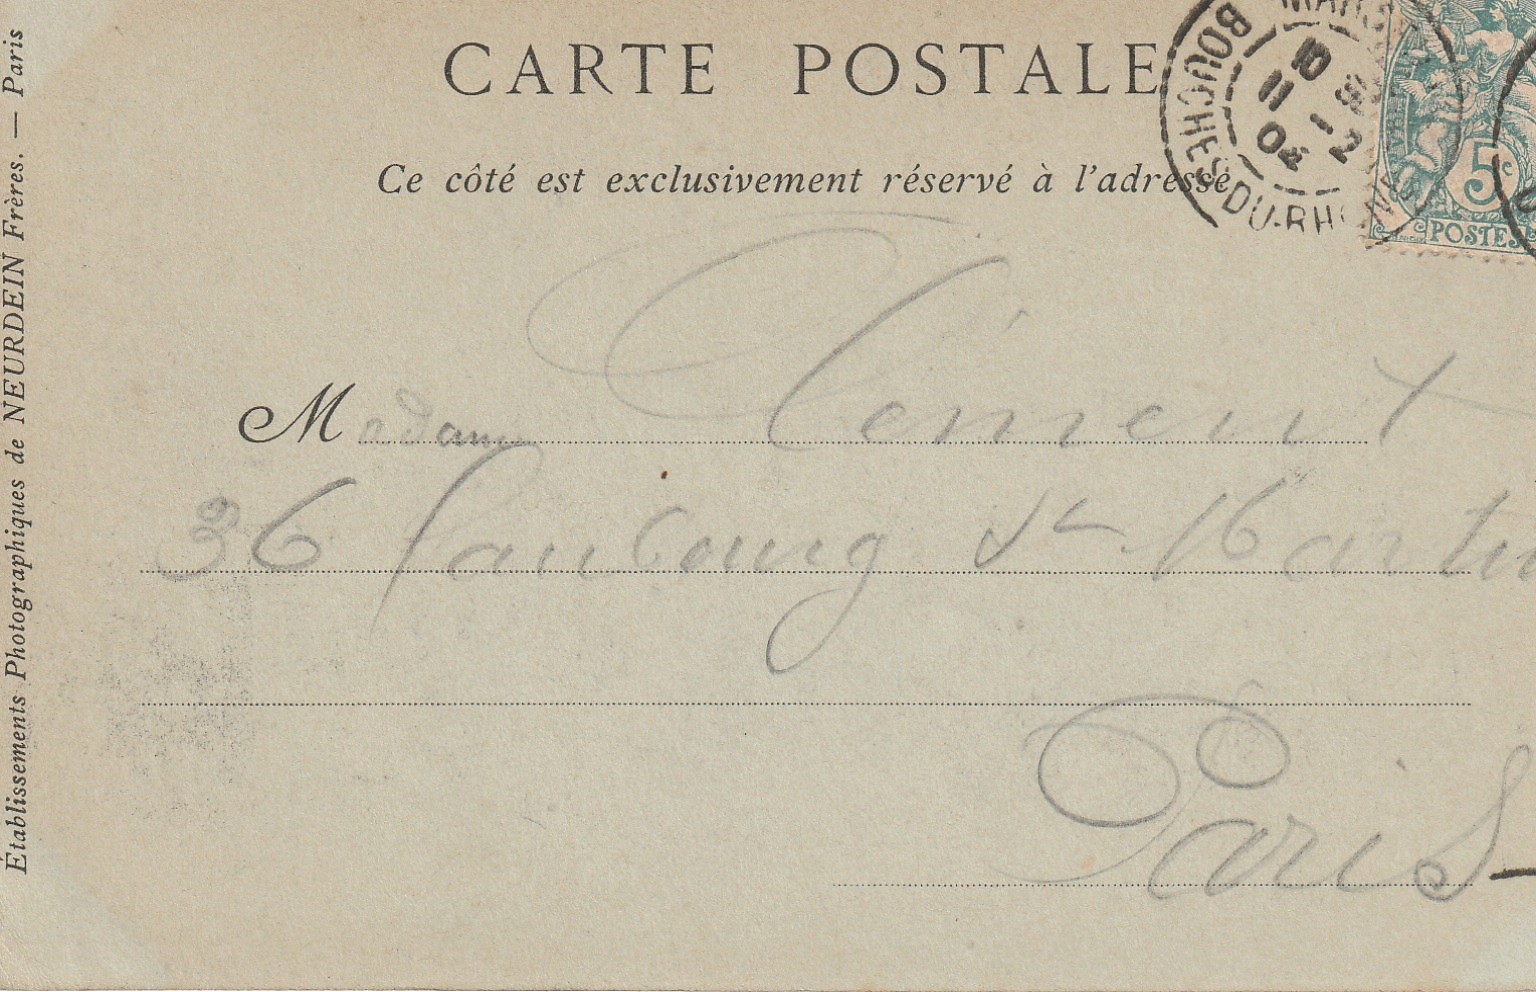 CARTE POSTALE
Ce côté est exclusivement réservé à l'adresse
Madame Clément
36 faubourg St Martin
Paris
Établissements Photographiques de NEURDEIN Frères. — Paris
BOUCHES-DU-RHÔ
10
11
04
5c
POSTES